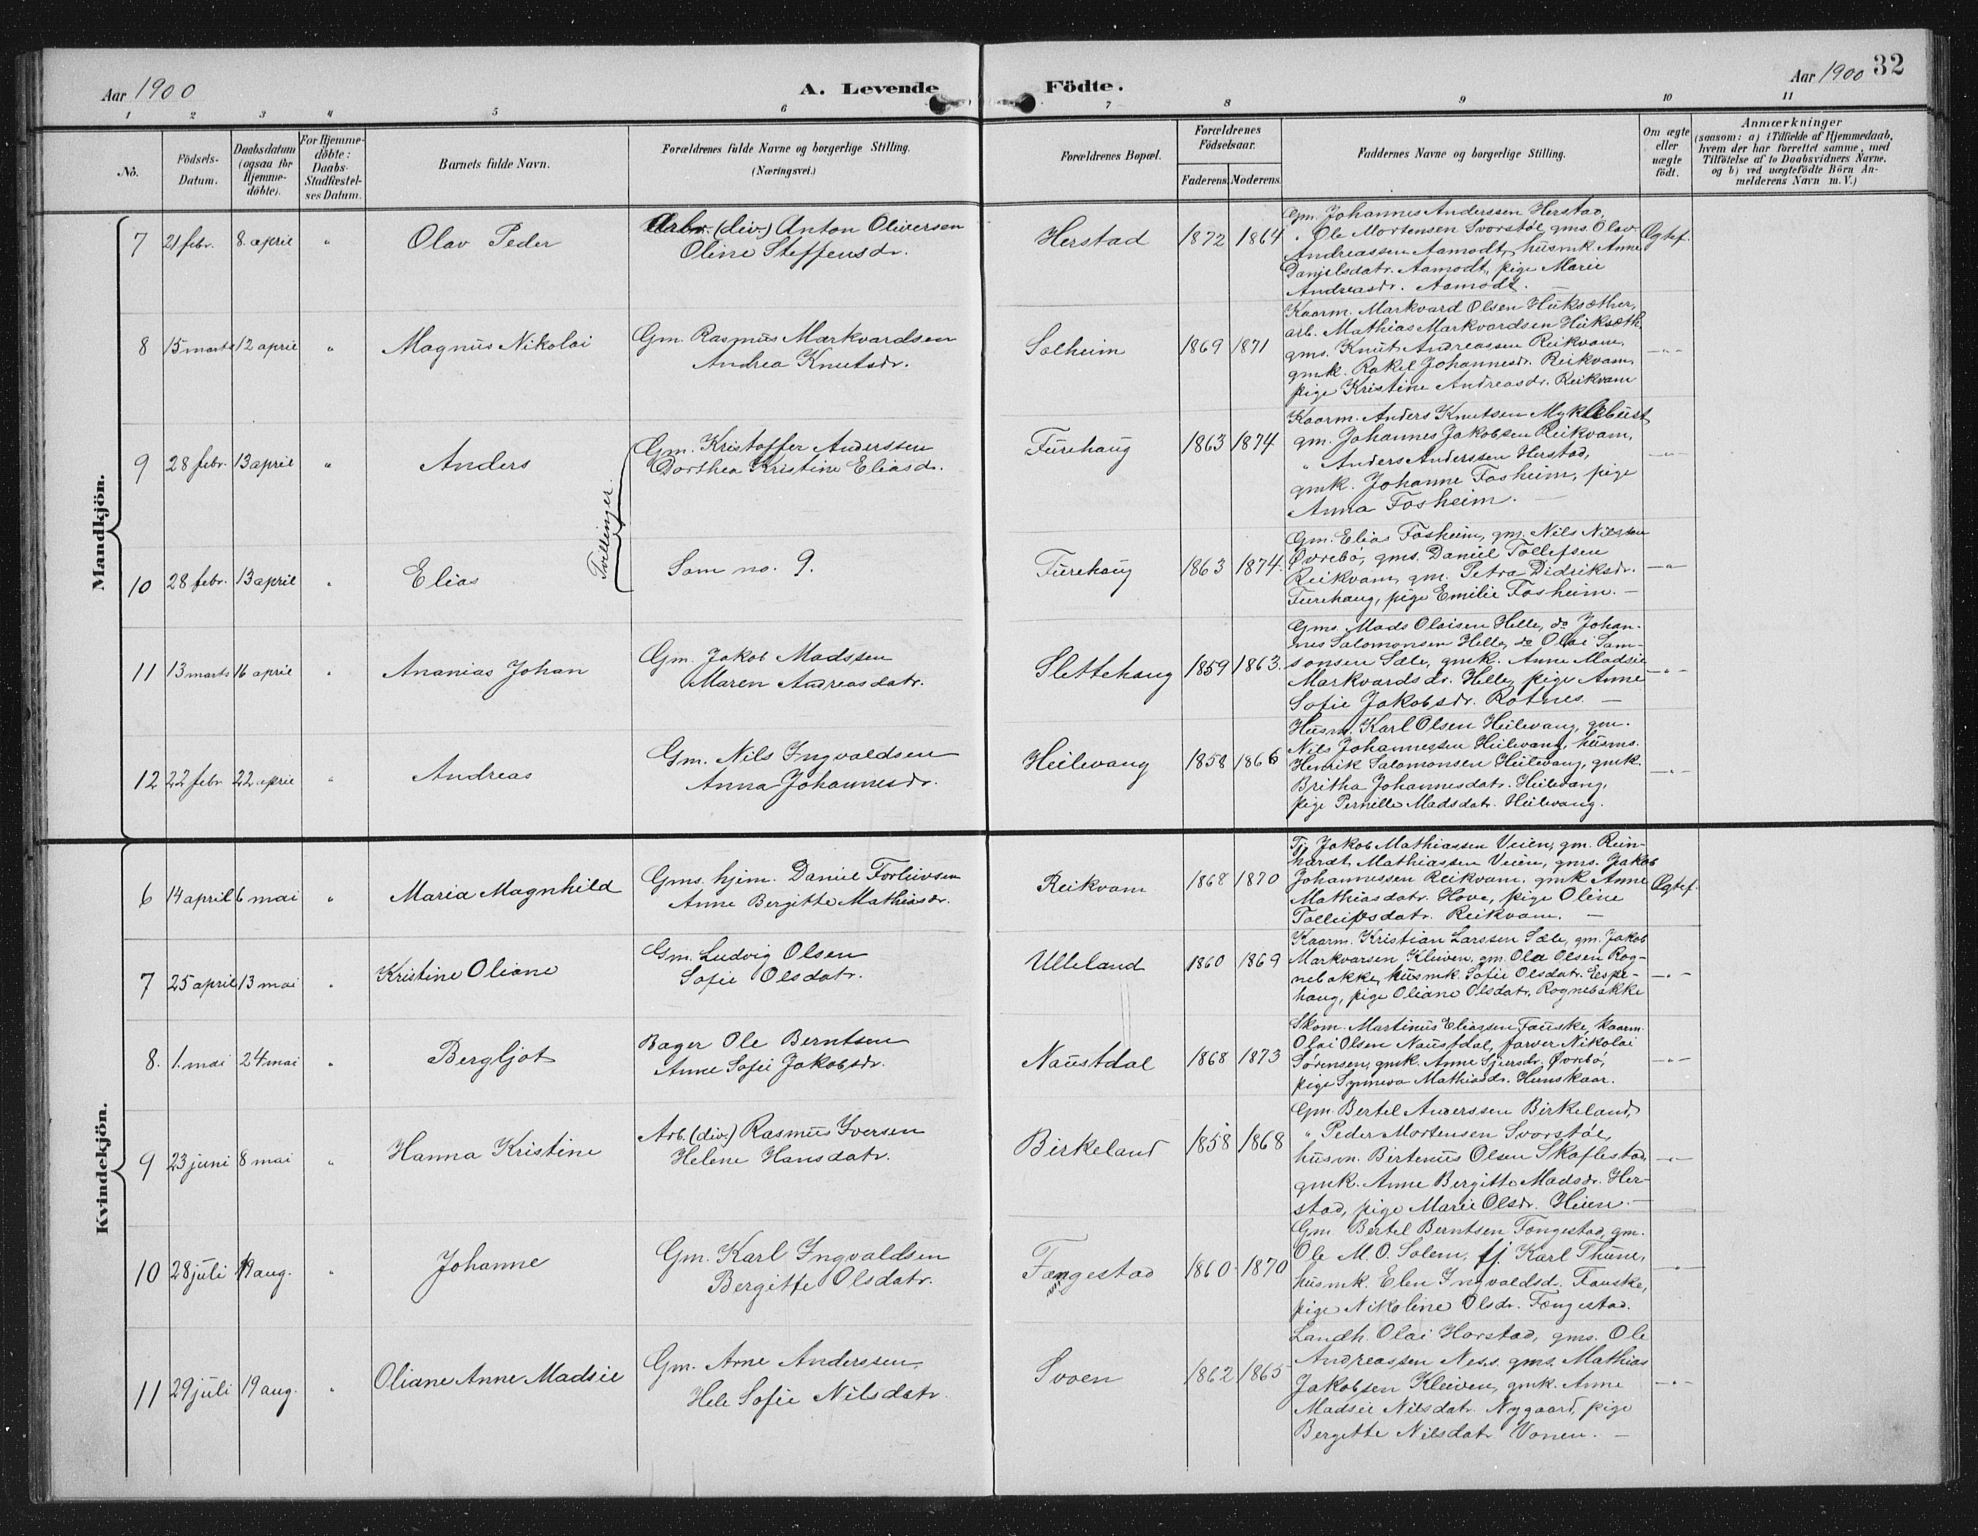 Aar 1900
A. Levende
Födte.
Aar 1900
32
1 2 3 4 5 6 7 8 9 10 11
No.
Födsels-
Datum.
Daabsdatum
(ogsaa for
Hjemme-
döbte).
For Hjemme-
döbte:
Daabs-
Stadfæstel-
ses Datum.
Barnets fulde Navn.
Forældrenes fulde Navne og borgerlige Stilling.
(Næringsvei.)
Forældrenes Bopæl.
Forældrenes
Födselsaar.
Faderens. Moderens.
Faddernes Navne og borgerlige Stilling.
Om ægte
eller
uægte
födt.
Anmærkninger
(saasom: a) i Tilfælde af Hjemmedaab,
hvem der har forrettet samme, med
Tilföielse af to Daabsvidners Navne,
og b) ved uægtefödte Börn An-
melderens Navn m. V.)
Mandkjön.
7 21 febr. 8 april " Olav Peder
Arbr. (div.) Anton Oliversen
Oline Steffensdr.
Herstad 1872 1864
Gm. Johannes Anderssen Herstad,
" Ole Mortensen Svorstøl, gms. Olav
Andreassen Aamodt, husmk. Anne
Danielsdatr. Aamodt, pige Marie
Andreasdr. Aamodt. —
Ægtef.
8 15 marts 12 april " Magnus Nikolai
Gm. Rasmus Markvardsen
Andrea Knutsdr.
Solheim 1869 1871
Kaarm. Markvard Olsen Huksæther,
arb. Mathias Markvardsen Huksæth.
gms. Knut Andreassen Reikvam,
gmk. Rakel Johannesdr. Reikvam,
pige Kristine Andreasdr. Reikvam
—"—
9 28 febr. 13 april " Anders
Tvillinger.
Gm. Kristoffer Anderssen
Dorthea Kristine Eliasdr.
Furehaug 1863 1874
Kaarm. Anders Knutsen Myklebust,
gm. Johannes Jakobsen Reikvam,
" Anders Anderssen Herstad,
gmk. Johanne Fosheim, pige
Anna Fosheim. —
—"—
10 28 febr. 13 april " Elias
Som no. 9.
Furehaug 1863 1874.
Gm. Elias Fosheim, gm. Nils Nilssen
Øvrebö, gms. Daniel Tollefsen
Reikvam, gm. Petra Didriksdr.
Furehaug, pige Emilie Fosheim. —
—"—
11 13 marts 16 april " Ananias Johan
Gm. Jakob Madssen
Maren Andreasdatr.
Slettehaug 1859 1863.
Gms. Mads Olaisen Helle, do Johan-
nes Salomonsen Helle, do Olai Sam-
sonsen Sæle, gmk. Anne Madsie
Markvardsdr. Helle, pige Anne
Sofie Jakobsdr. Rotnes. —
—"—
12 22 febr. 22 april " Andreas
Gm. Nils Ingvaldsen
Anna Johannesdr.
Heilevang 1858 1866
Husm. Karl Olsen Heilevang, gm.
Nils Johannessen Heilevang, husms.
Henrik Salomonsen Heilevang, gmk.
Britha Johannesdatr. Heilevang,
pige Pernille Madsdatr. Heilevang.
—"—
Kvindekjön.
6 14 april 6 mai " Maria Magnhild
Gms. hjem. Daniel Torleivsen
Anne Bergitte Mathiasdr.
Reikvam 1868 1870
Tj. Jakob Mathiassen Veien, gm. Rein-
hardt Mathiassen Veien, gms. Jakob
Johannessen Reikvam, gmk Anne
Mathiasdatr. Hove, pige Oline
Tolleifsdatr. Reikvam. —
Ægtef.
7 25 april 13 mai " Kristine Oliane
Gm. Ludvig Olsen
Sofie Olsdatr.
Ulleland 1860 1869
Kaarm. Kristian Larssen Sæle, gm. Jakob
Markvarsen Kleiven, gm. Ola Olsen Rog-
nebakke, husmk. Sofie Olsdatr. Espe-
haug, pige Oliane Olsdatr. Rognebakke
—"—
8. 1. mai 24 mai " Bergljot
Bager Ole Berntsen
Anne Sofie Jakobsdr.
Naustdal 1868 1873
Skom. Martinus Eliassen Fauske, kaarm.
Olai Olsen Naustdal, farver Nikolai
Sørensen, gmk. Anne Sjursdr. Øvrebö,
pige Synneva Mathiasdr. Hunskaar.
—"—
9 23 juni 8 mai " Hanna Kristine
Arb. (div.) Rasmus Iversen
Helene Hansdatr.
Birkeland 1858 1868
Gm. Bertel Anderssen Birkeland,
" Peder Mortensen Svorstøl,
husm. Bertenus Olsen Skaflestad,
gmk. Anne Bergitte Madsdr. Her-
stad, pige Marie Olsdr. Heien. —
—"—
10 28 juli 19 aug. " Johanne
Gm. Karl Ingvaldsen
Bergitte Olsdatr.
Fængestad 1860 1870
Gm. Bertel Berntsen Fongestad, gm.
Ole M. O. Solem, tj. Karl Thune,
husmk. Elen Ingvaldsd. Fauske,
pige Nikoline Olsdr. Fængestad.
—"—
11 29 juli 19 aug. " Oliane Anne Madsie
Gm. Arne Anderssen
Hele Sofie Nilsdatr.
Svoen 1862 1865
Landh. Olai Horstad, gms. Ole
Andreassen Ness, gms. Mathias
Jakobsen Kleiven, gmk. Anne
Madsie Nilsdatr. Nygaard, pige
Bergitte Nilsdatr Vonen. —
—"—